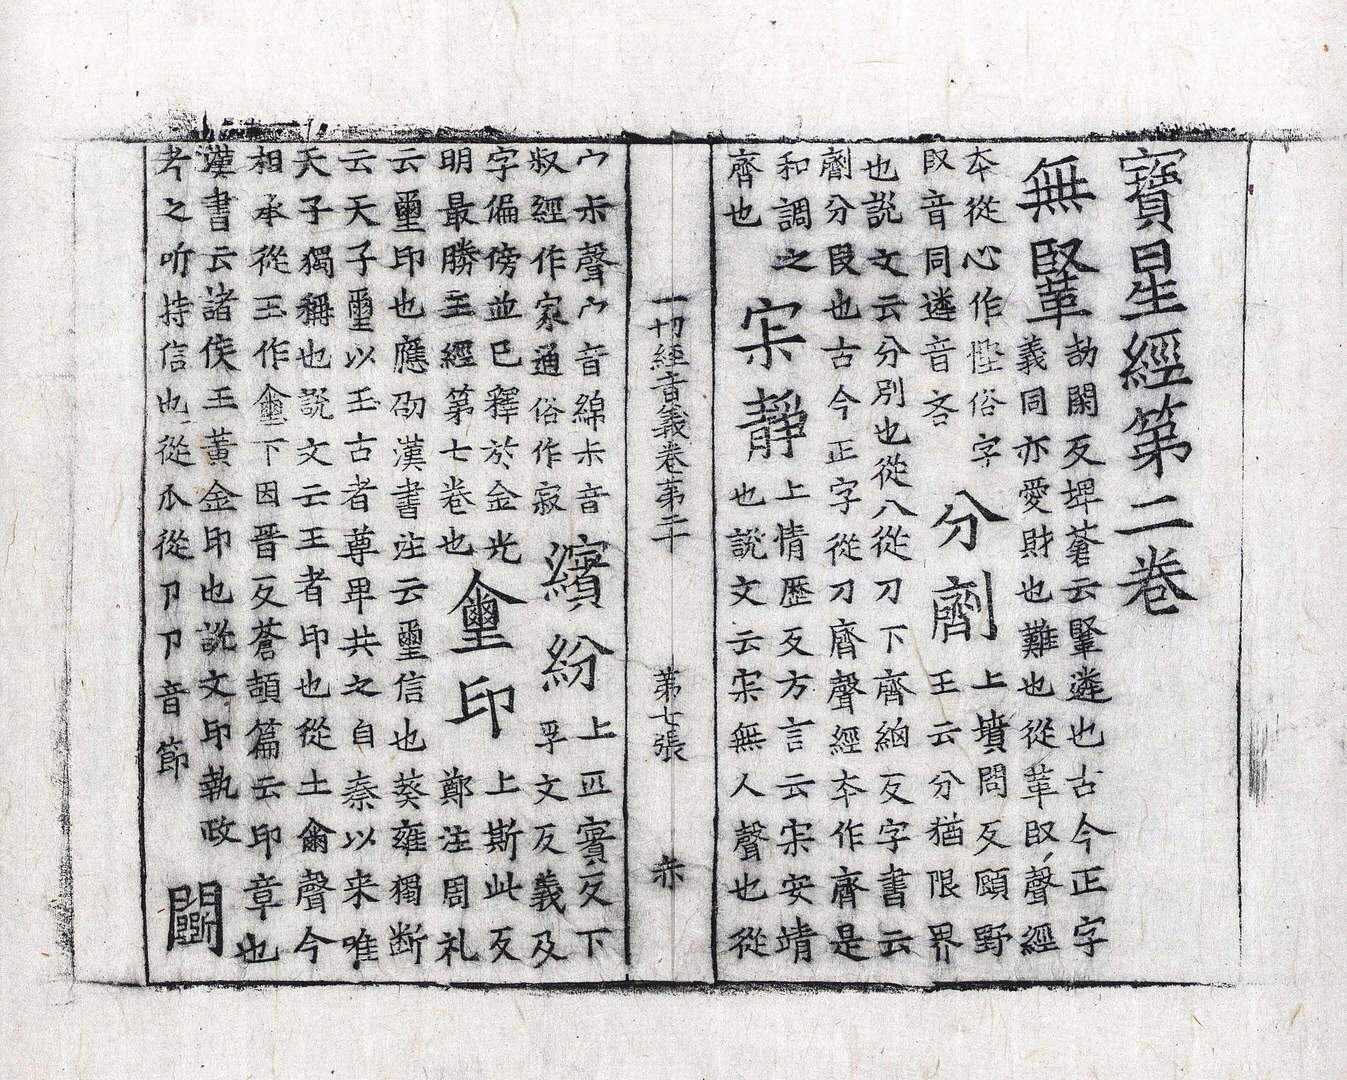 寶星經第二卷
無
劫閑反埤蒼云遴也古今正字
義同亦愛財也難也從革臤聲經
本從心作慳俗字
臤音同遴音吝
分劑
上墳問反顧野
王云分猶限界
也說文云分別也從八從刀下齊細反字書云
劑分段也古今正字從刀齊聲經本作齊是
和調之
齊也
宋靜
上情歷反方言云宋安靖
也說文云宋無人聲也從
一切經音義卷第二十 第七張
宀尗聲宀音綿尗音
叔經作家通俗作寂
繽紛
上匹賓反下
孚文反義及
字偏傍並已釋於金光
明最勝王經第七卷也
璽印
上斯此反
鄭注周礼
云璽印也應劭漢書注云璽信也蔡雍獨断
云天子璽以玉古者尊卑共之自秦以来唯
天子獨稱也說文云王者印也從土爾聲今
相承從玉作璽下因晋反蒼頡篇云印章也
漢書云諸侯王黃金印也說文印執政
者之所持信也從爪從卩卩音節
鬬